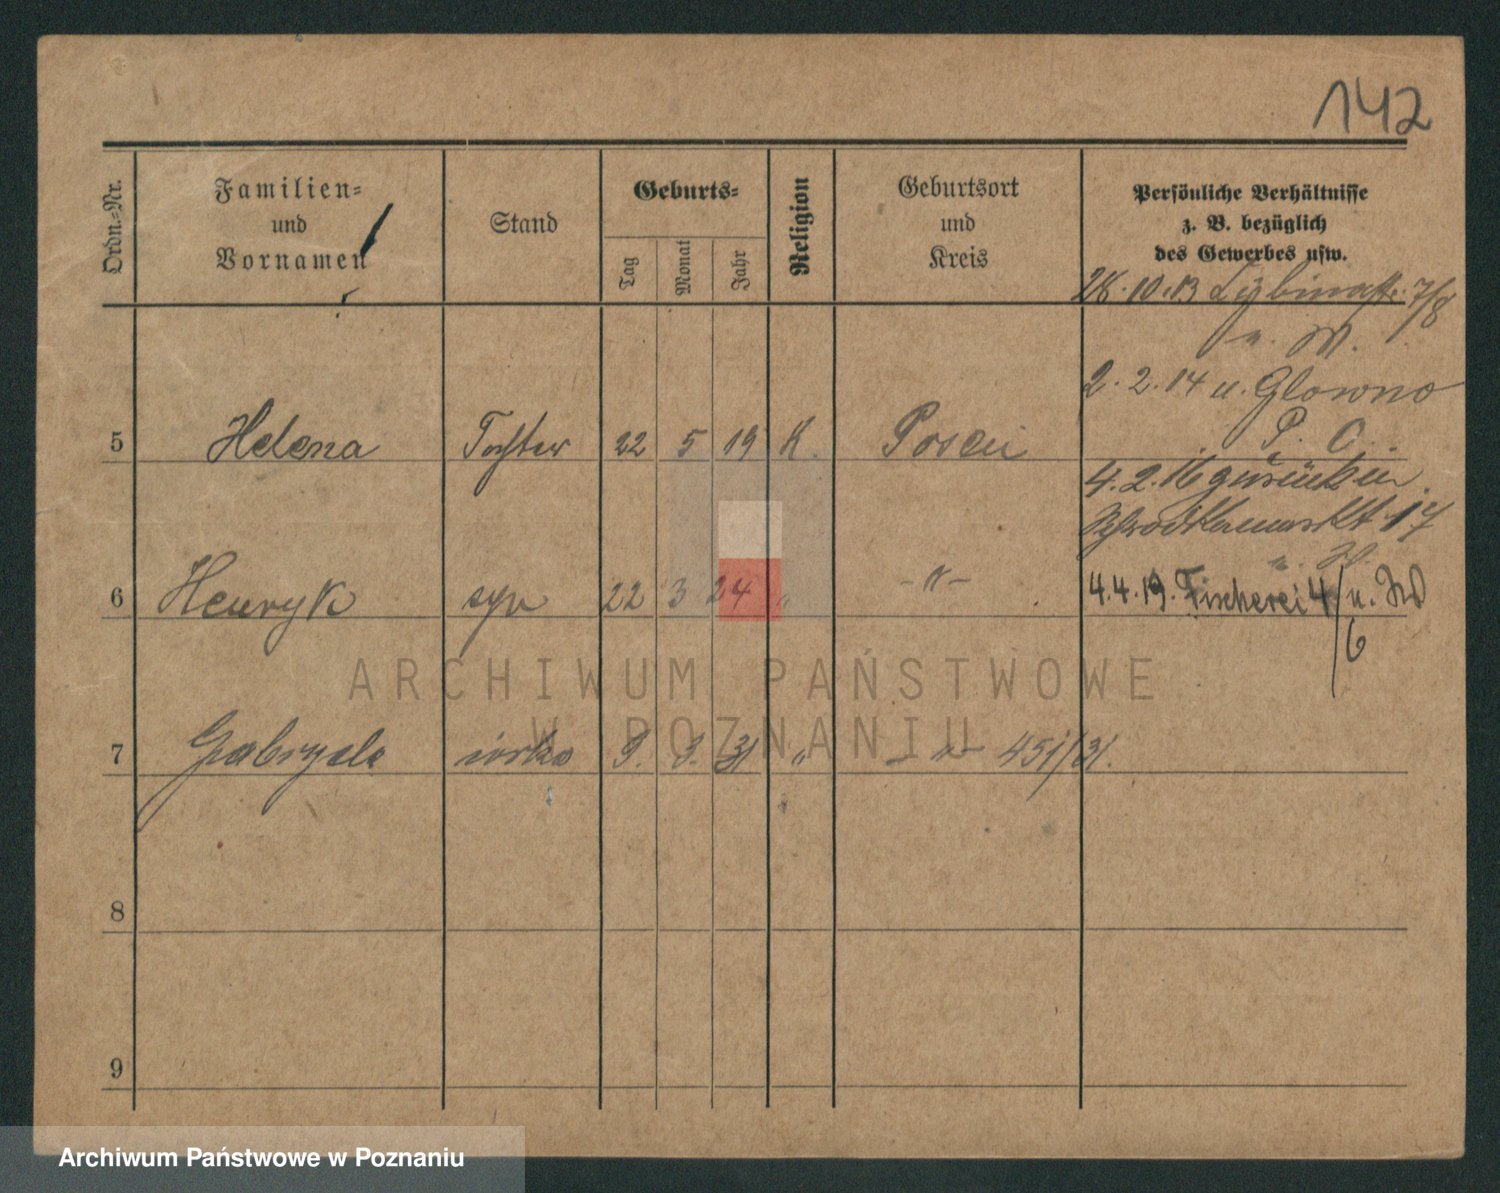 142
Ordn.-Nr.
Familien-
und
Vornamen
Stand
Geburts-
Tag
Monat
Jahr
Religion
Geburtsort
und
Kreis
Persönliche Verhältnisse
z. B. bezüglich
des Gewerbes usw.
28.10.13 7/8
u. W.
2.2.14 u. Glowno
P. O.
5 Helena Tochter 22 5 19 K. Posen
4.2.16 zurück in
Schrodkamarkt 17
6 Henryk syn 22 3 24 " -"-
4.4.19. Fischerei 4/6 u. W
ARCHIWUM PAŃSTWOWE
W POZNANIU
7 Gabryela córka 9. 9. 31 " -"- 451/31.
8
9
Archiwum Państwowe w Poznaniu